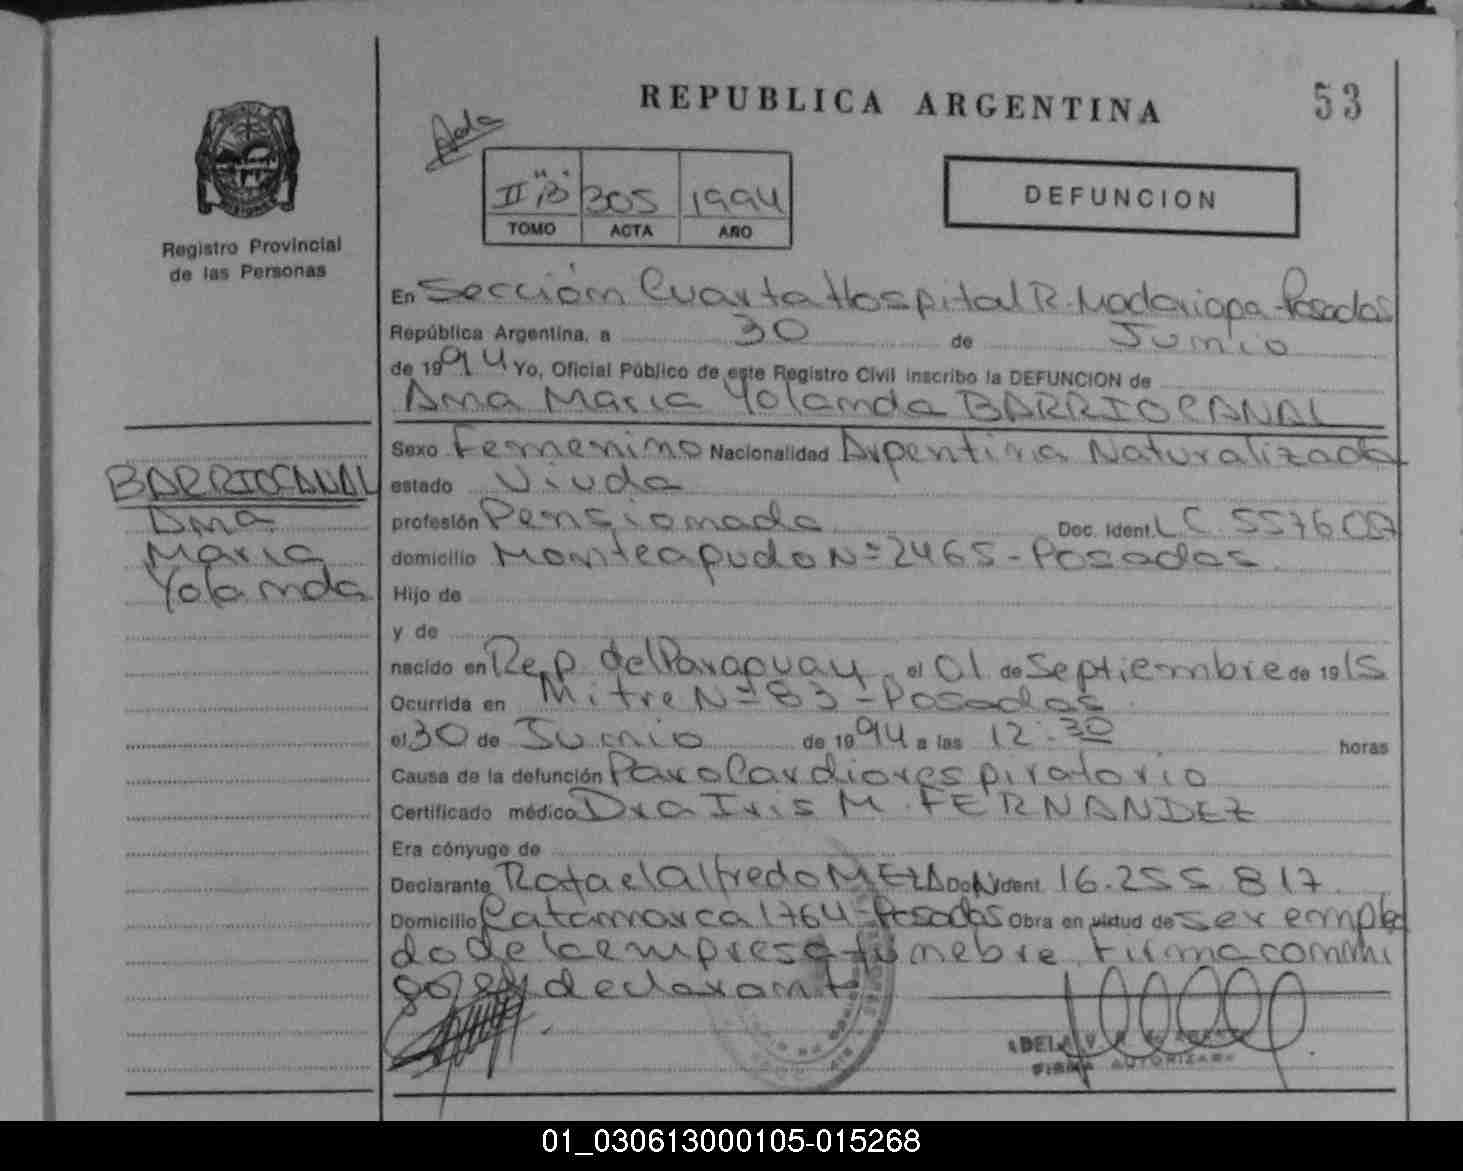 REPUBLICA ARGENTINA
53
II "B" 305 1994
TOMO ACTA AÑO
DEFUNCION
Registro Provincial
de las Personas
En Sección Cuarta Hospital R. Madariaga - Posadas
República Argentina, a 30 de Junio
de 1994 Yo, Oficial Público de este Registro Civil inscribo la DEFUNCION de
Ana Maria Yolanda BARRIOCANAL
BARRIOCANAL
Ana
Maria
Yolanda
Sexo Femenino Nacionalidad Argentina Naturalizada
estado Viuda
profesión Pensionada Doc. Ident. L.C. 5576
domicilio Monteagudo Nº 2465 - Posadas
Hijo de
y de
nacido en Rep. del Paraguay el 01 de Septiembre de 1915
Ocurrida en Mitre Nº 83 - Posadas
el 30 de Junio de 1994 a las 12:30 horas
Causa de la defunción Paro Cardiorespiratorio
Certificado médico Dra Iris M. FERNANDEZ
Era cónyuge de
Declarante Rafael Alfredo Doc. Ident. 16.255.817
Domicilio Catamarca 1764 - Posadas Obra en virtud de ser emplea
do de la empresa funebre. Firma conmi
go el declarante
FIRMA AUTORIZADA
01_030613000105-015268